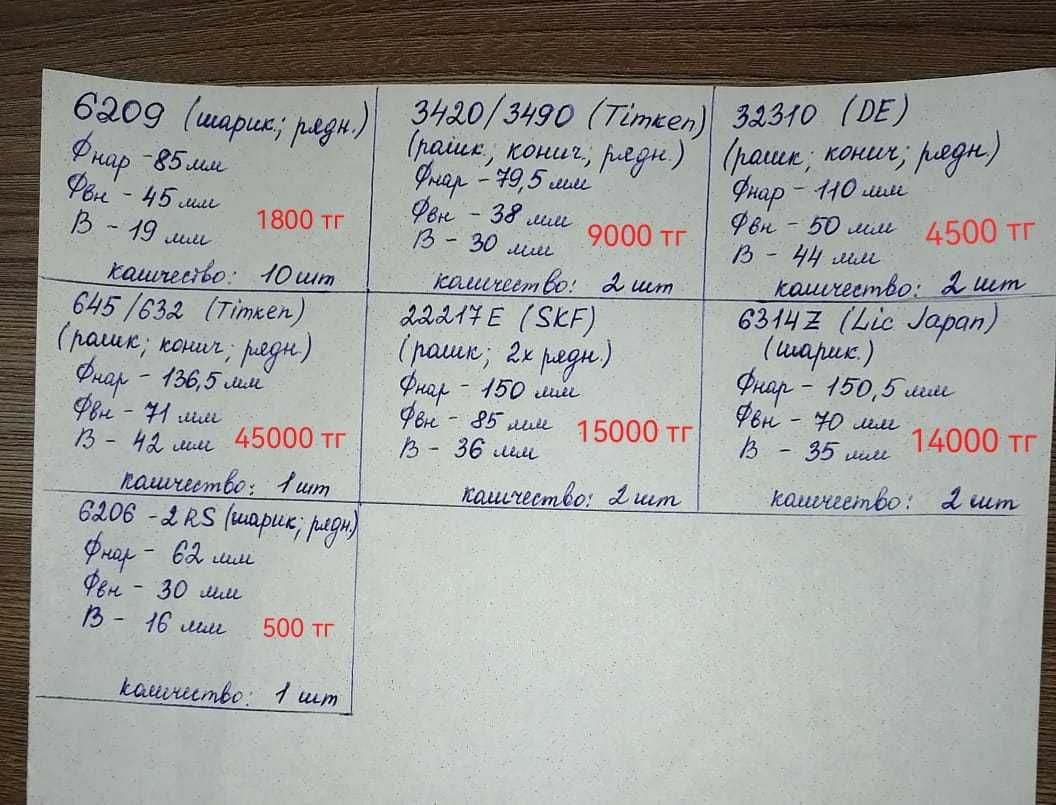 6209 (шарик; рядн.)
Фнар - 85 мм
Фвн - 45 мм
В - 19 мм
1800 тг
количество: 10 шт
3420/3490 (Timken)
(ролик., конич.; рядн.)
Фнар - 79,5 мм
Фвн - 38 мм
В - 30 мм
9000 тг
количество: 2 шт
32310 (DE)
(ролик; конич; рядн.)
Фнар - 110 мм
Фвн - 50 мм
В - 44 мм
4500 тг
количество: 2 шт
645/632 (Timken)
(ролик; конич; рядн.)
Фнар - 136,5 мм
Фвн - 71 мм
В - 42 мм
45000 тг
количество: 1 шт
22217E (SKF)
(ролик; 2х рядн.)
Фнар - 150 мм
Фвн - 85 мм
В - 36 мм
15000 тг
количество: 2 шт
6314Z (Lic Japan)
(шарик.)
Фнар - 150,5 мм
Фвн - 70 мм
В - 35 мм
14000 тг
количество: 2 шт
6206 - 2RS (шарик; рядн.)
Фнар - 62 мм
Фвн - 30 мм
В - 16 мм
500 тг
количество: 1 шт